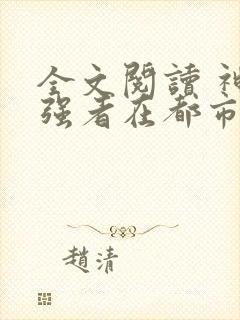 全文閱讀 神
强者在都市
趙清